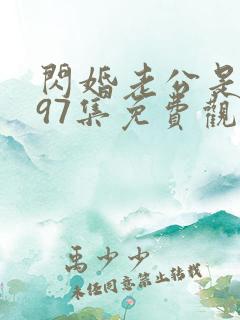 閃婚老公是
97集免費觀
禹少少
未經同意禁止轉載